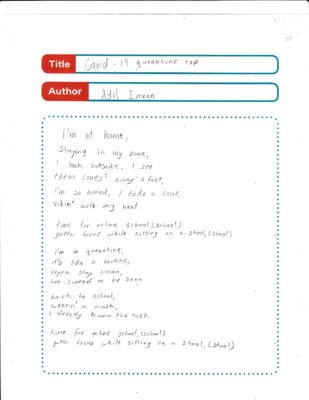 Title Covid-19 qurantine rap
Author Adil Imran
I'm at home,
Staying in my zone,
I look outside, I see
them away 6 feet,
I'm so bored, I take a seat,
vibin' with my beat
time for online school, (school)
gotta focus while sitting on a stool, (stool)
I'm in qurantine,
it's like a routine,
tryna stay clean,
too scared to be seen
back to school,
wearin' a mask,
I already know the task
time for online school, (school)
gotta focus while sitting on a stool, (stool)